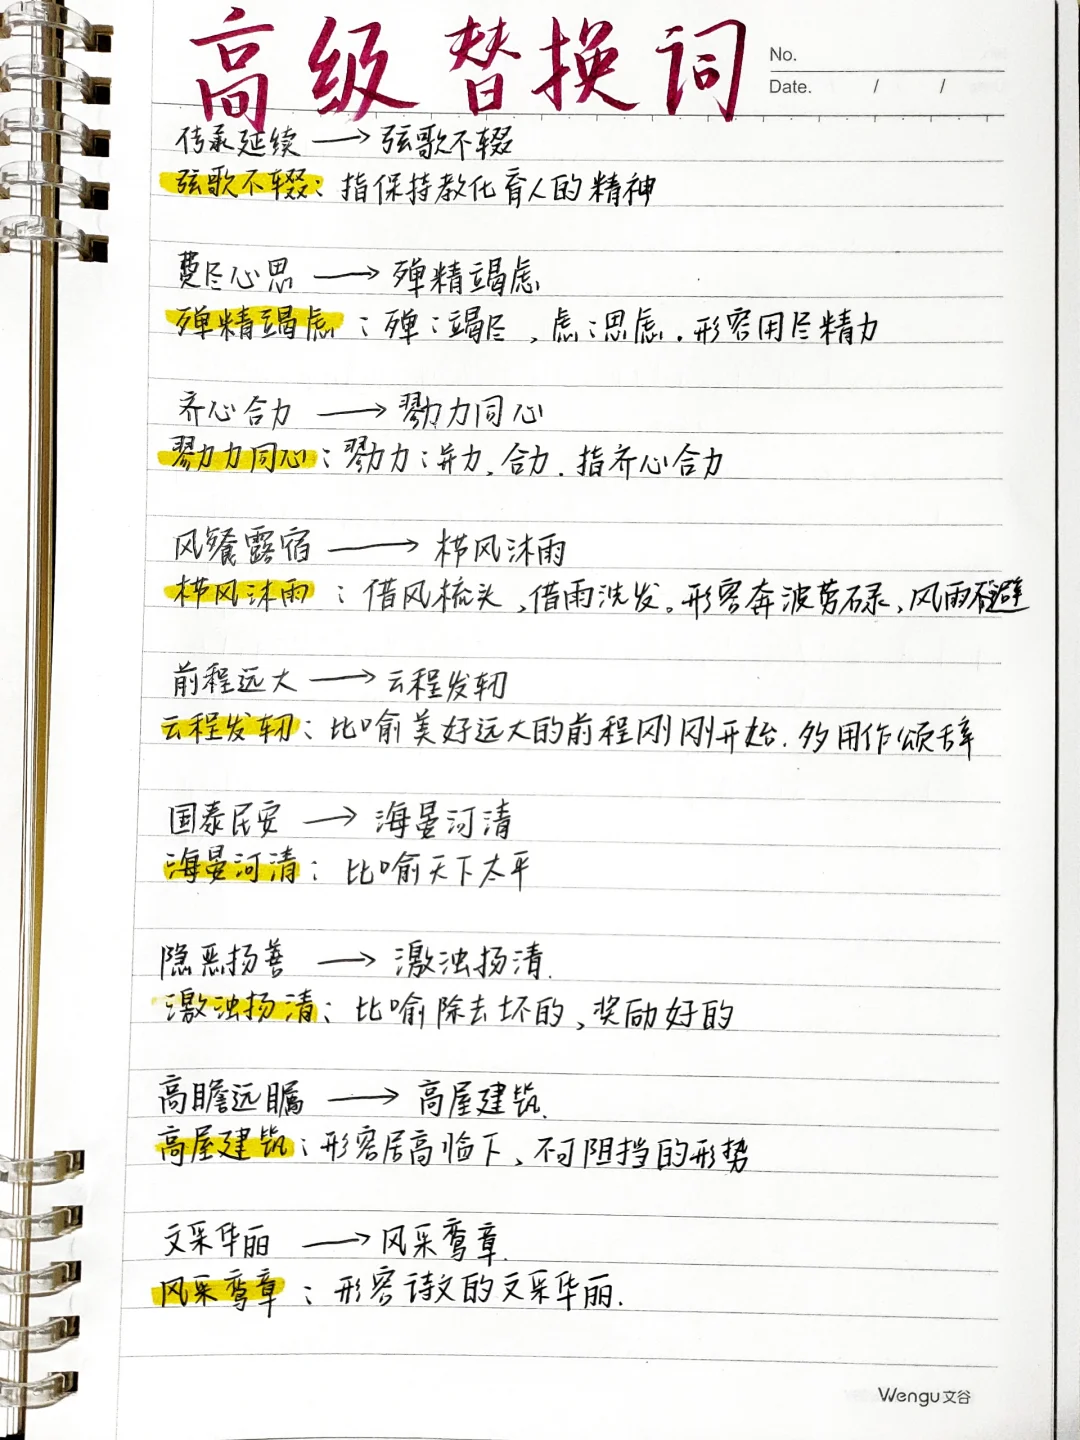 高级替换词
No.
Date. / /
传承延续 → 弦歌不辍
弦歌不辍：指保持教化育人的精神
费尽心思 → 殚精竭虑
殚精竭虑：殚：竭尽，虑：思虑．形容用尽精力
齐心合力 → 勠力同心
勠力同心：勠力：并力、合力．指齐心合力
风餐露宿 → 栉风沐雨
栉风沐雨：借风梳头，借雨洗发。形容奔波劳碌、风雨不避
前程远大 → 云程发轫
云程发轫：比喻美好远大的前程刚刚开始．多用作颂辞
国泰民安 → 海晏河清
海晏河清：比喻天下太平
隐恶扬善 → 激浊扬清．
激浊扬清：比喻除去坏的、奖励好的
高瞻远瞩 → 高屋建瓴．
高屋建瓴：形容居高临下、不可阻挡的形势
文采华丽 → 风采鸾章．
风采鸾章：形容诗文的文采华丽．
Wengu文谷